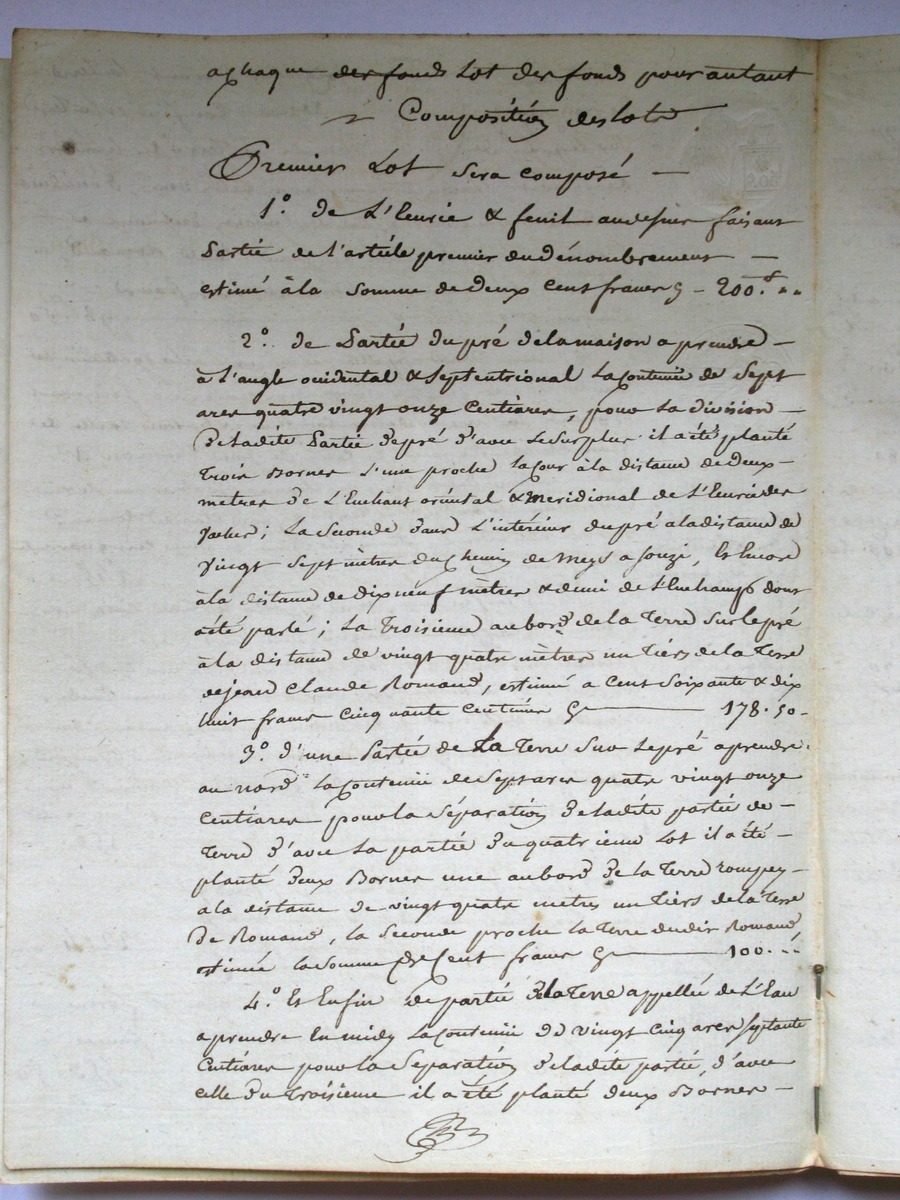 a chaque des fonds Lot des fonds pour autant
Composition des lots
Premier Lot sera composé —
1.° de L'Ecurie & fenil au dessus faisant
Partie de l'article premier du dénombrement —
estimé à la somme de deux Cent francs cy - 200.f ..
2.° de Partie du pré de la maison a prendre —
à L'angle occidental & Septentrional La Contenue de Sept
ares quatre vingt onze Centiares, pour La division —
de ladite Partie de pré d'avec Le Surplus il a été planté
Trois Bornes L'une proche la Cour à la distance de deux —
metres de L'Enchant oriental & Meridional de L'Ecurie des
Vaches ; La Seconde dans L'intérieur du pré a la distance de
Vingt Sept mètres du Chemin de Meys a Souzi, Et Encore
à la distance de dix neuf mètres & demi de L'Enchamp dont
a été parlé ; La Troisieme au bord de la Terre Sur le pré
à la distance de vingt quatre mètres un Tiers de la Terre
de jean Claude Romand, estimé a Cent Soixante & dix
huit francs Cinquante Centimes Cy — 178.50 -
3.° d'une Partie de La Terre Sur Le pré a prendre
au nord La Contenue de Sept ares quatre vingt onze
Centiares pour la Séparation de ladite partie de —
Terre d'avec La partie du quatrieme Lot il a été —
planté deux Bornes une au bord de la Terre —
a la distance de vingt quatre metres un Tiers de la Terre
de Romand, la Seconde proche la Terre dudit Romand
estimée la Somme de Cent francs Cy — 100. ..
4.° Et Enfin de partie de la Terre appellée de L'Eau
a prendre En midy La Contenue de vingt Cinq ares Septante
Centiares pour la Séparation de ladite partie, d'avec
celle du Troisieme il a été planté deux Bornes —